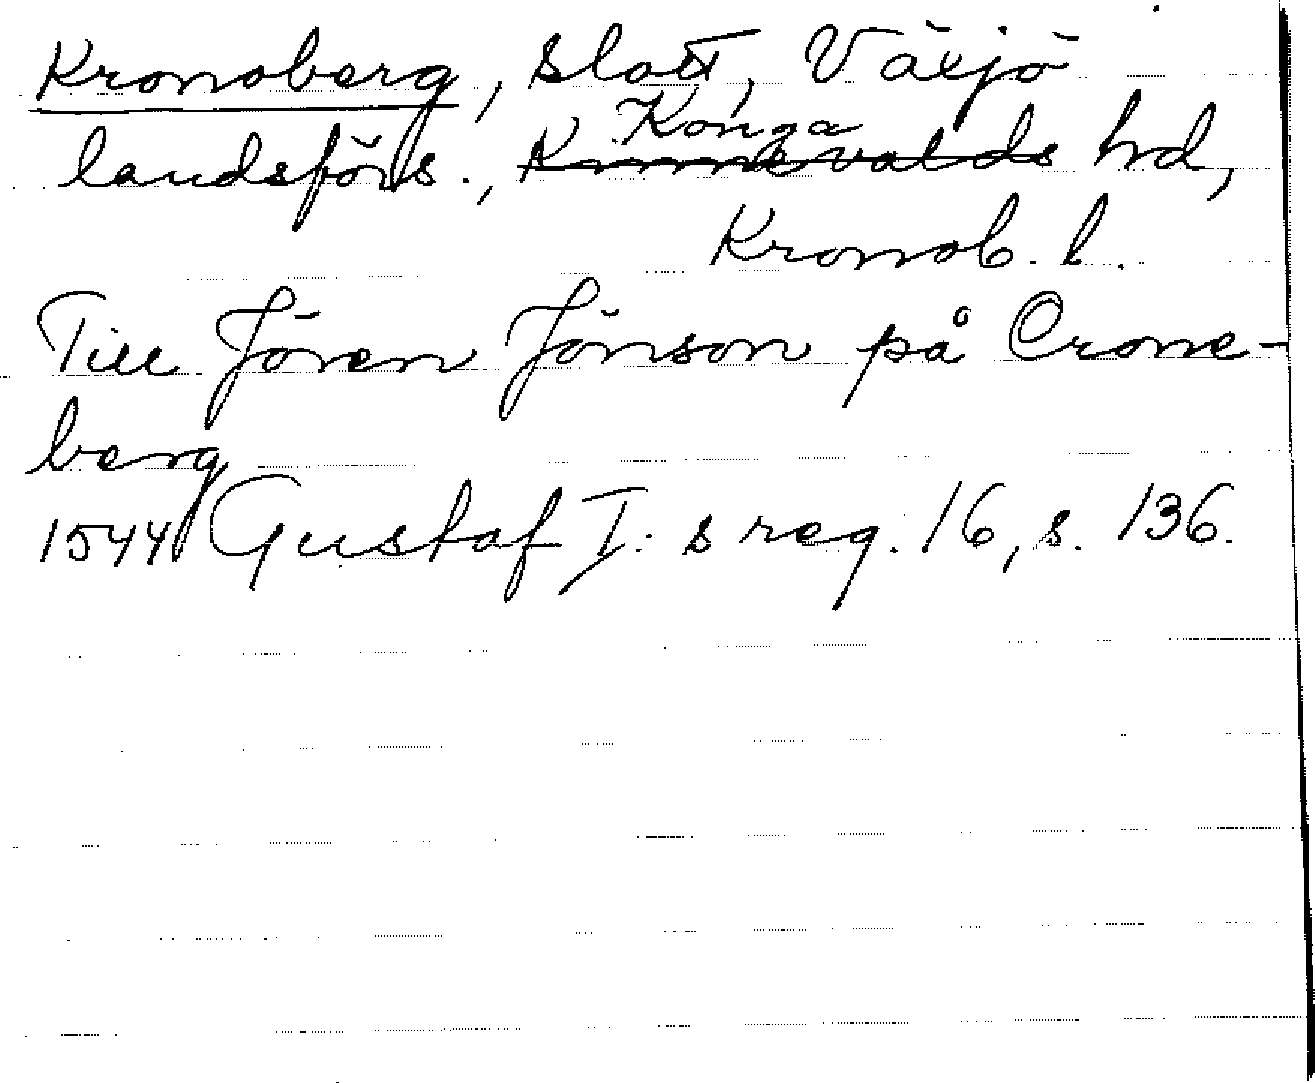 Kronoberg, slott, Växjö
landsförs., Kinnevalds Konga hd,
Kronob. l.
Till Jören Jönson på Crone-
berg
1544 Gustaf I:s reg. 16, s. 136.